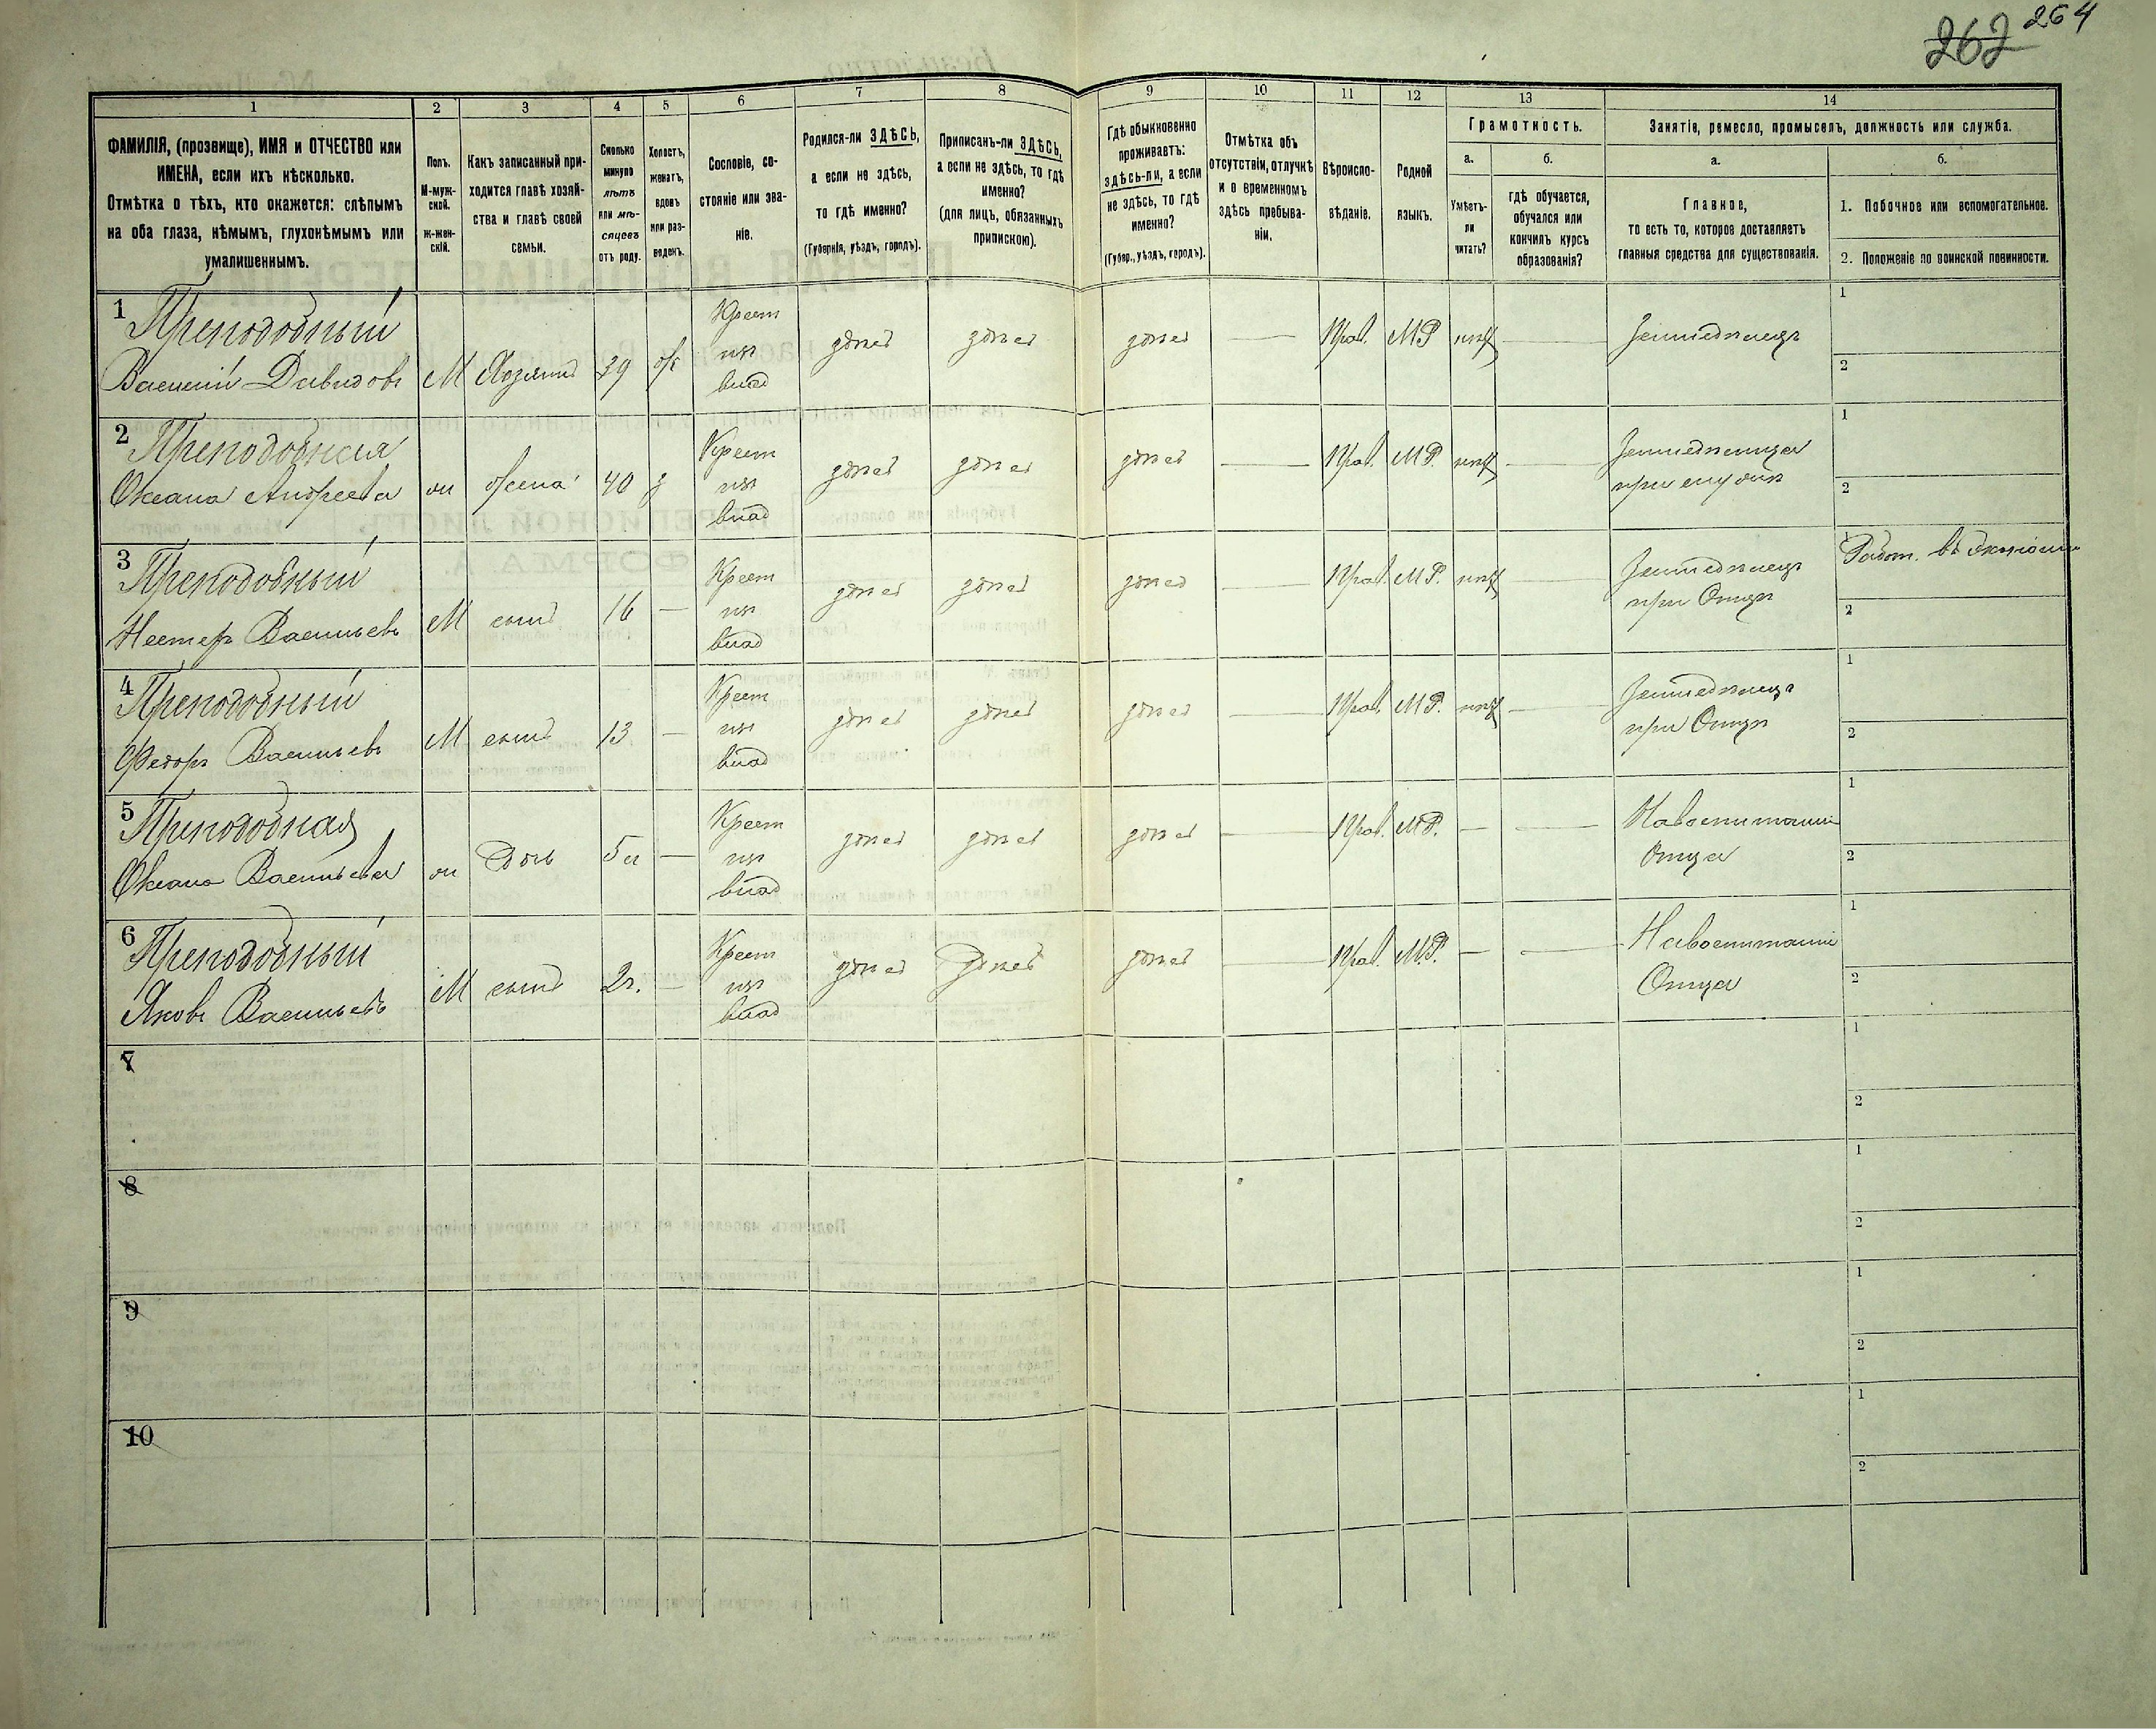 262 264
1 2 3 4 5 6 7 8 9 10 11 12 13 14
ФАМИЛІЯ, (прозвище), ИМЯ и ОТЧЕСТВО или
ИМЕНА, если ихъ нѣсколько.
Отмѣтка о тѣхъ, кто окажется: слѣпымъ
на оба глаза, нѣмымъ, глухонѣмымъ или
умалишеннымъ.
Полъ.
М-муж-
ской.
ж-жен-
скій.
Какъ записанный при-
ходится главѣ хозяй-
ства и главѣ своей
семьи.
Сколько
минуло
лѣтъ
или мѣ-
сяцевъ
отъ роду.
Холостъ,
женатъ,
вдовъ
или раз-
веденъ.
Сословіе, со-
стояніе или зва-
ніе.
Родился-ли ЗДѢСЬ,
а если не здѣсь,
то гдѣ именно?
(Губернія, уѣздъ, городъ).
Приписанъ-ли ЗДѢСЬ,
а если не здѣсь, то гдѣ
именно?
(для лицъ, обязанныхъ
припискою).
Гдѣ обыкновенно
проживаетъ:
здѣсь-ли, а если
не здѣсь, то гдѣ
именно?
(Губер., уѣздъ, городъ).
Отмѣтка объ
отсутствіи, отлучкѣ
и о временномъ
здѣсь пребыва-
ніи.
Вѣроиспо-
вѣданіе.
Родной
языкъ.
Грамотность.
а.
Умѣетъ-
ли
читать?
б.
гдѣ обучается,
обучался или
кончилъ курсъ
образованія?
Занятіе, ремесло, промыселъ, должность или служба.
а.
Главное,
то есть то, которое доставляетъ
главныя средства для существованія.
б.
1. Побочное или вспомогательное.
2. Положеніе по воинской повинности.
1 Преподобный
Василій Давидовъ М Хозяинъ 39 ж Крест из влад здѣсь здѣсь здѣсь — Прав. МР нѣт — Земледѣлецъ 1 2
2 Преподобная
Оксана Андреева ж жена 40 з Крест из влад здѣсь здѣсь здѣсь — Прав. МР. нѣт — Земледѣлица при мужѣ 1 2
3 Преподобный
Нестеръ Васильевъ М сынъ 16 — Крест из влад здѣсь здѣсь здѣсь — Прав. МР. нѣт — Земледѣлецъ при Отцѣ 1 Работ. въ экономіи 2
4 Преподобный
Федоръ Васильевъ М сынъ 13 — Крест из влад здѣсь здѣсь здѣсь — Прав. МР. нѣт — Земледѣлецъ при Отцѣ 1 2
5 Преподобная
Оксана Васильева ж Дочь 5 л — Крест из влад здѣсь здѣсь здѣсь — Прав. МР. — — На воспитаніи Отца 1 2
6 Преподобный
Яковъ Васильевъ М сынъ 2г. — Крест из влад здѣсь здѣсь здѣсь — Прав. МР. — — На воспитаніи Отца 1 2
7 1 2
8 1 2
9 1 2
10 1 2